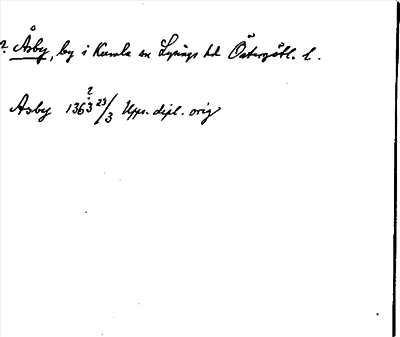 ? Åsby, by i Kumla sn Lysings hd Östergötl. l.
Asby 1363 ? 23/3 Upps. dipl. orig